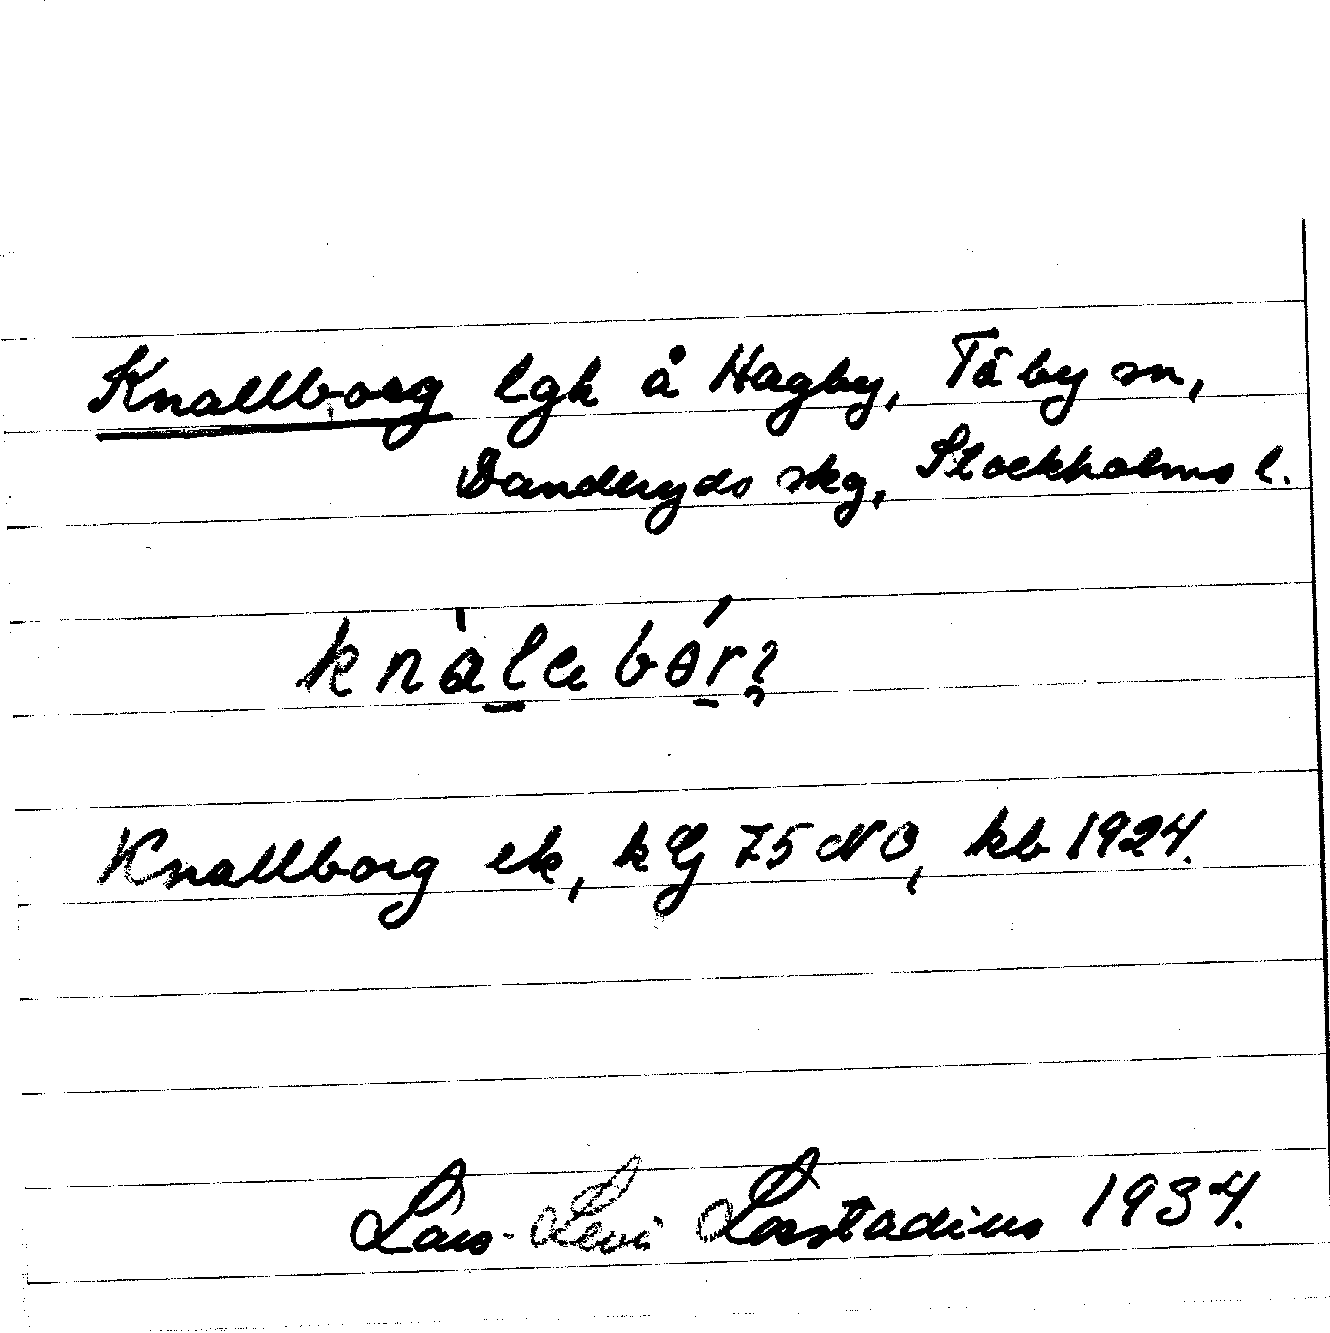 Knallborg lgk å Hagby, Täby sn,
Danderyds skg, Stockholms l.
Knallborg ek, kG 75 NO, kb 1924.
Lars-Levi Læstadius 1934.